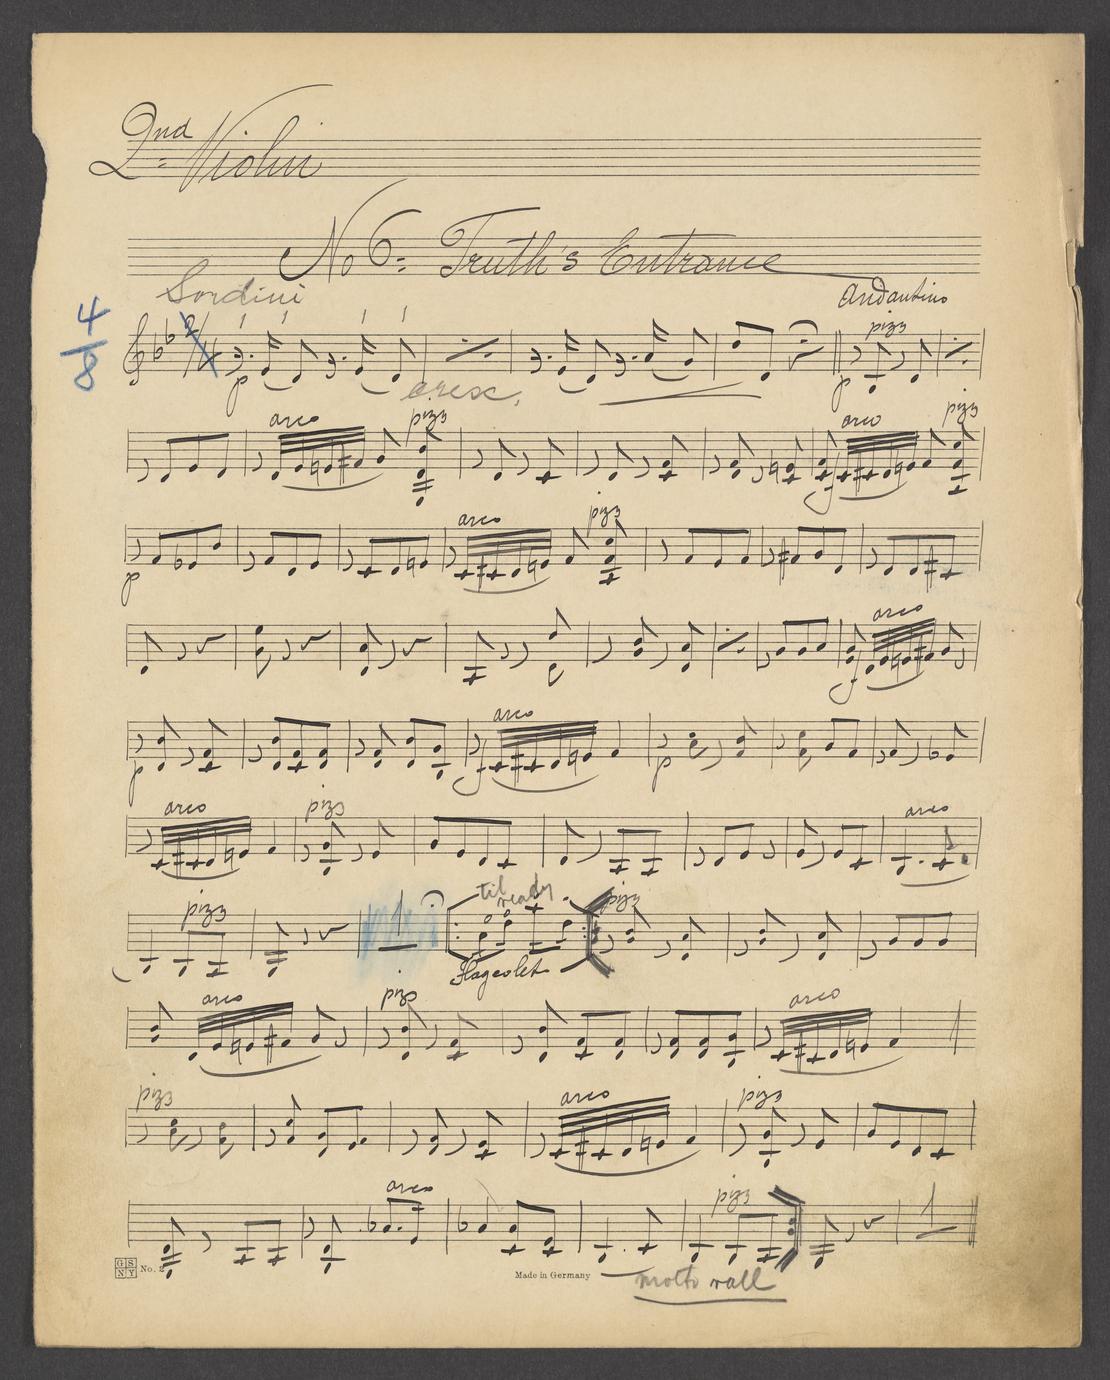 2nd Violin
No 6 = Truth's Entrance
Sordini Andantino
4/8 2/4 pizz
p cresc. p
arco pizz arco pizz
f
arco pizz
p
arco
f
arco
p f p
arco pizz arco
pizz til ready pizz
Flageolet
arco pizz arco
pizz arco pizz
arco pizz
GS NY No. 2 Made in Germany molto rall